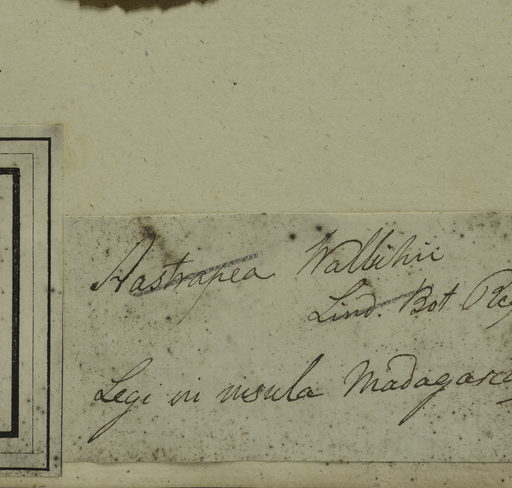 Astrapea Wallichii
Lind. Bot Reg
Legi in insula Madagasca